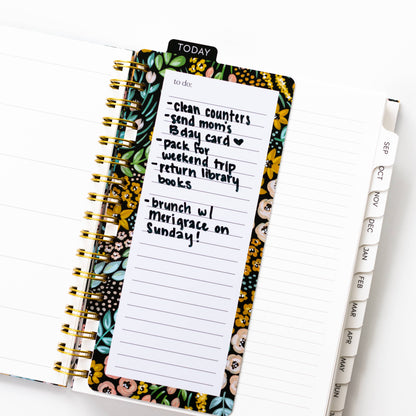 TODAY
to do:
- clean counters
- send mom's
Bday card ♥
- pack for
weekend trip
- return library
books
- brunch w/
merigrace on
Sunday!
SEP
OCT
NOV
DEC
JAN
FEB
MAR
APR
MAY
JUN